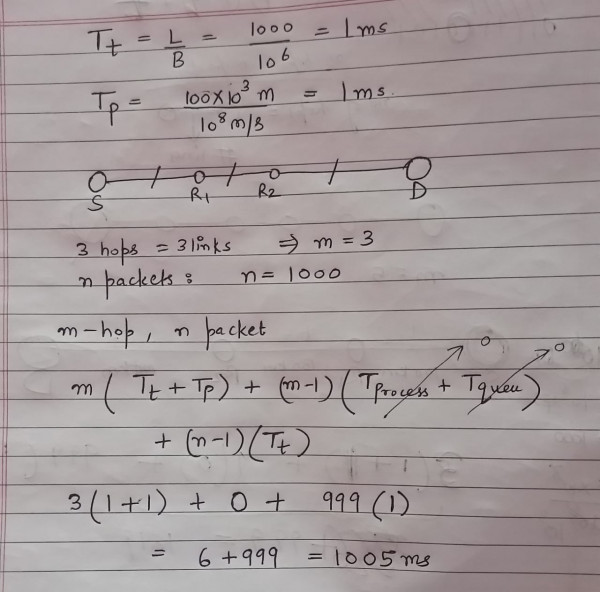 Tt = L/B = 1000/10^6 = 1ms
Tp = 100×10^3 m / 10^8 m/s = 1ms.
S R1 R2 D
3 hops = 3 links ⇒ m = 3
n packets : n = 1000
m-hop, n packet
0 0
m ( Tt + Tp ) + (m-1) ( Tprocess + Tqueu )
+ (n-1) (Tt)
3(1+1) + 0 + 999 (1)
= 6 + 999 = 1005 ms